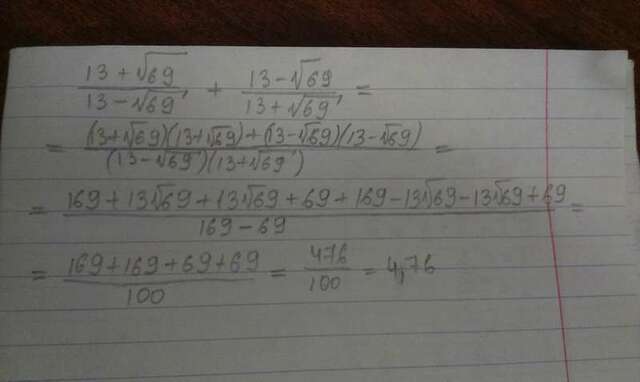 (13+√69)/(13-√69) + (13-√69)/(13+√69) =
= ((13+√69)(13+√69)+(13-√69)(13-√69))/((13-√69)(13+√69)) =
= (169+13√69+13√69+69+169-13√69-13√69+69)/(169-69) =
= (169+169+69+69)/100 = 476/100 = 4,76